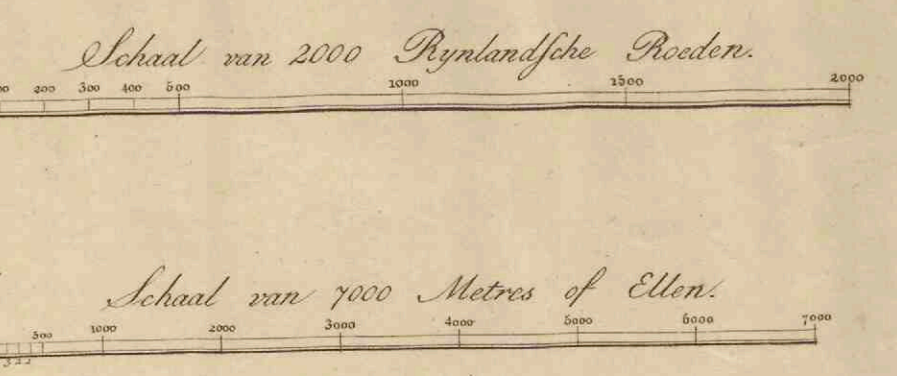 Schaal van 2000 Rynlandſche Roeden.
200 300 400 500 1000 1500 2000
Schaal van 7000 Metres of Ellen.
500 1000 2000 3000 4000 5000 6000 7000